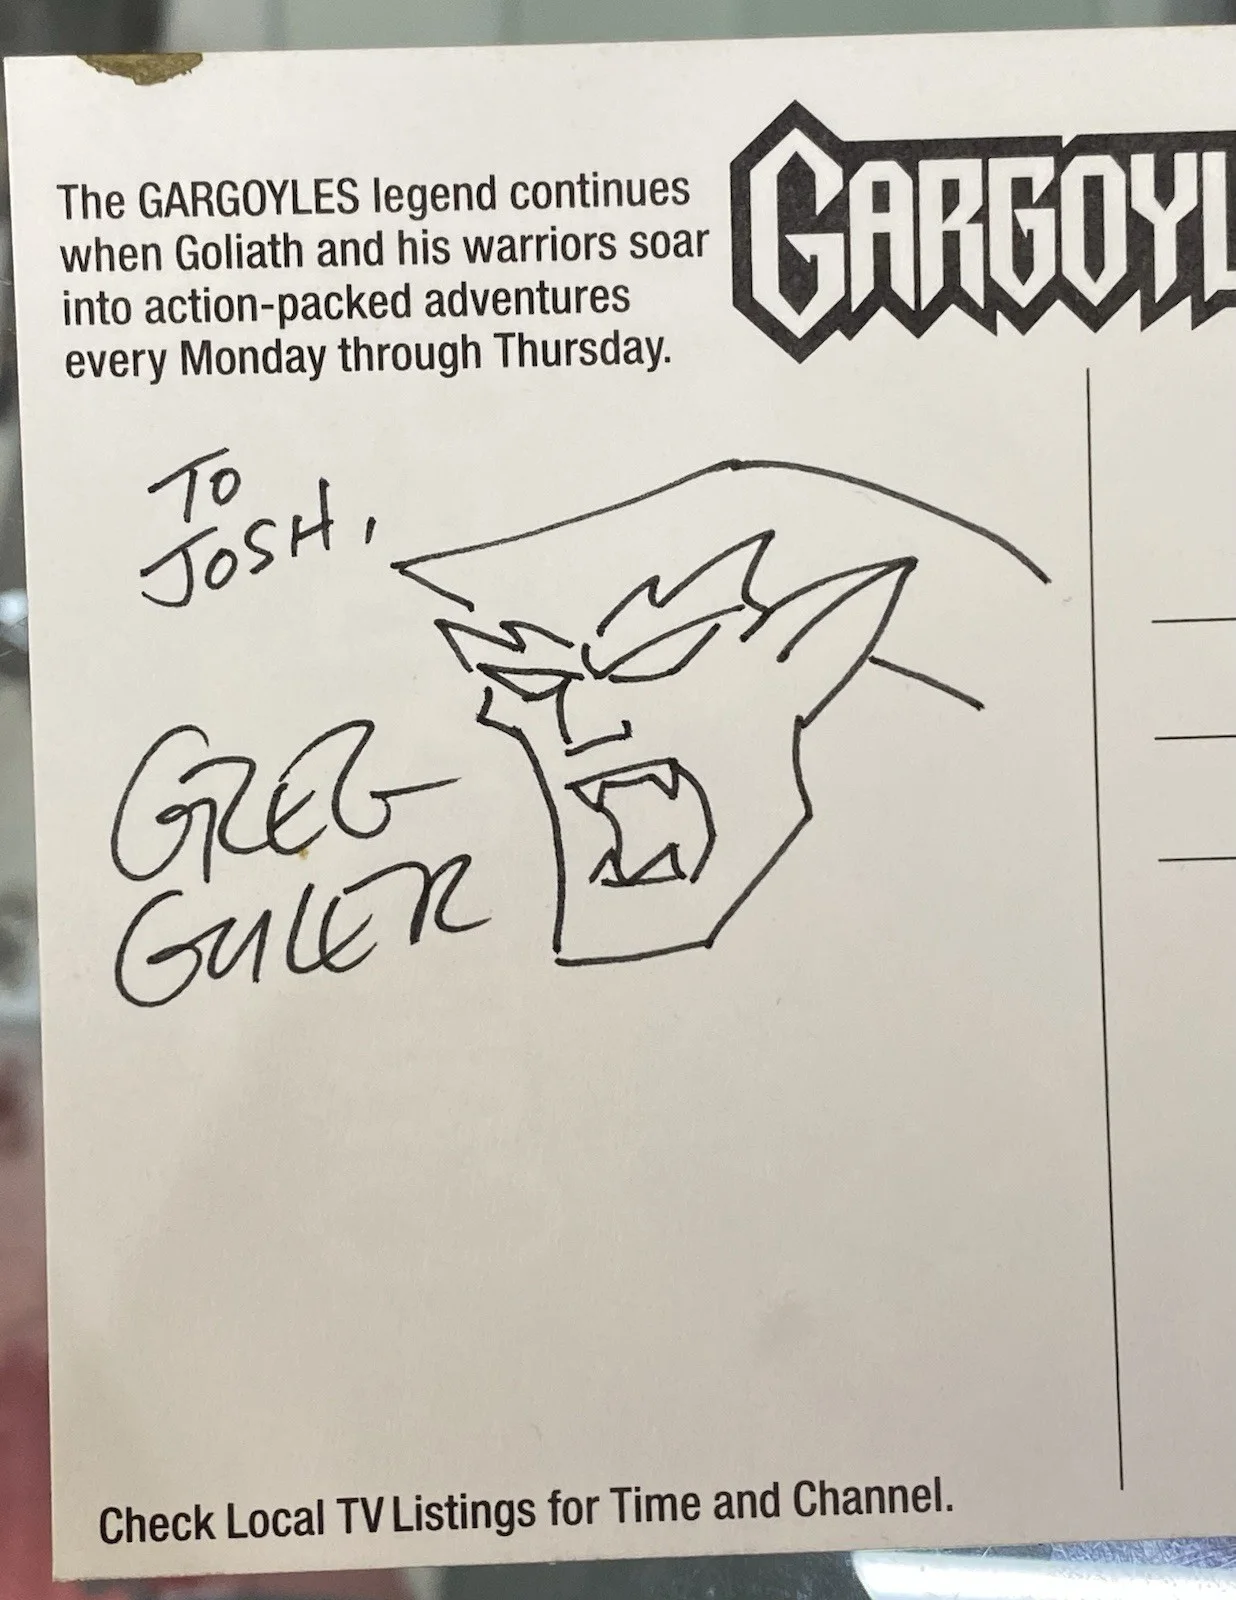 The GARGOYLES legend continues
when Goliath and his warriors soar
into action-packed adventures
every Monday through Thursday.
GARGOYL
TO
JOSH,
GREG
GULER
Check Local TV Listings for Time and Channel.